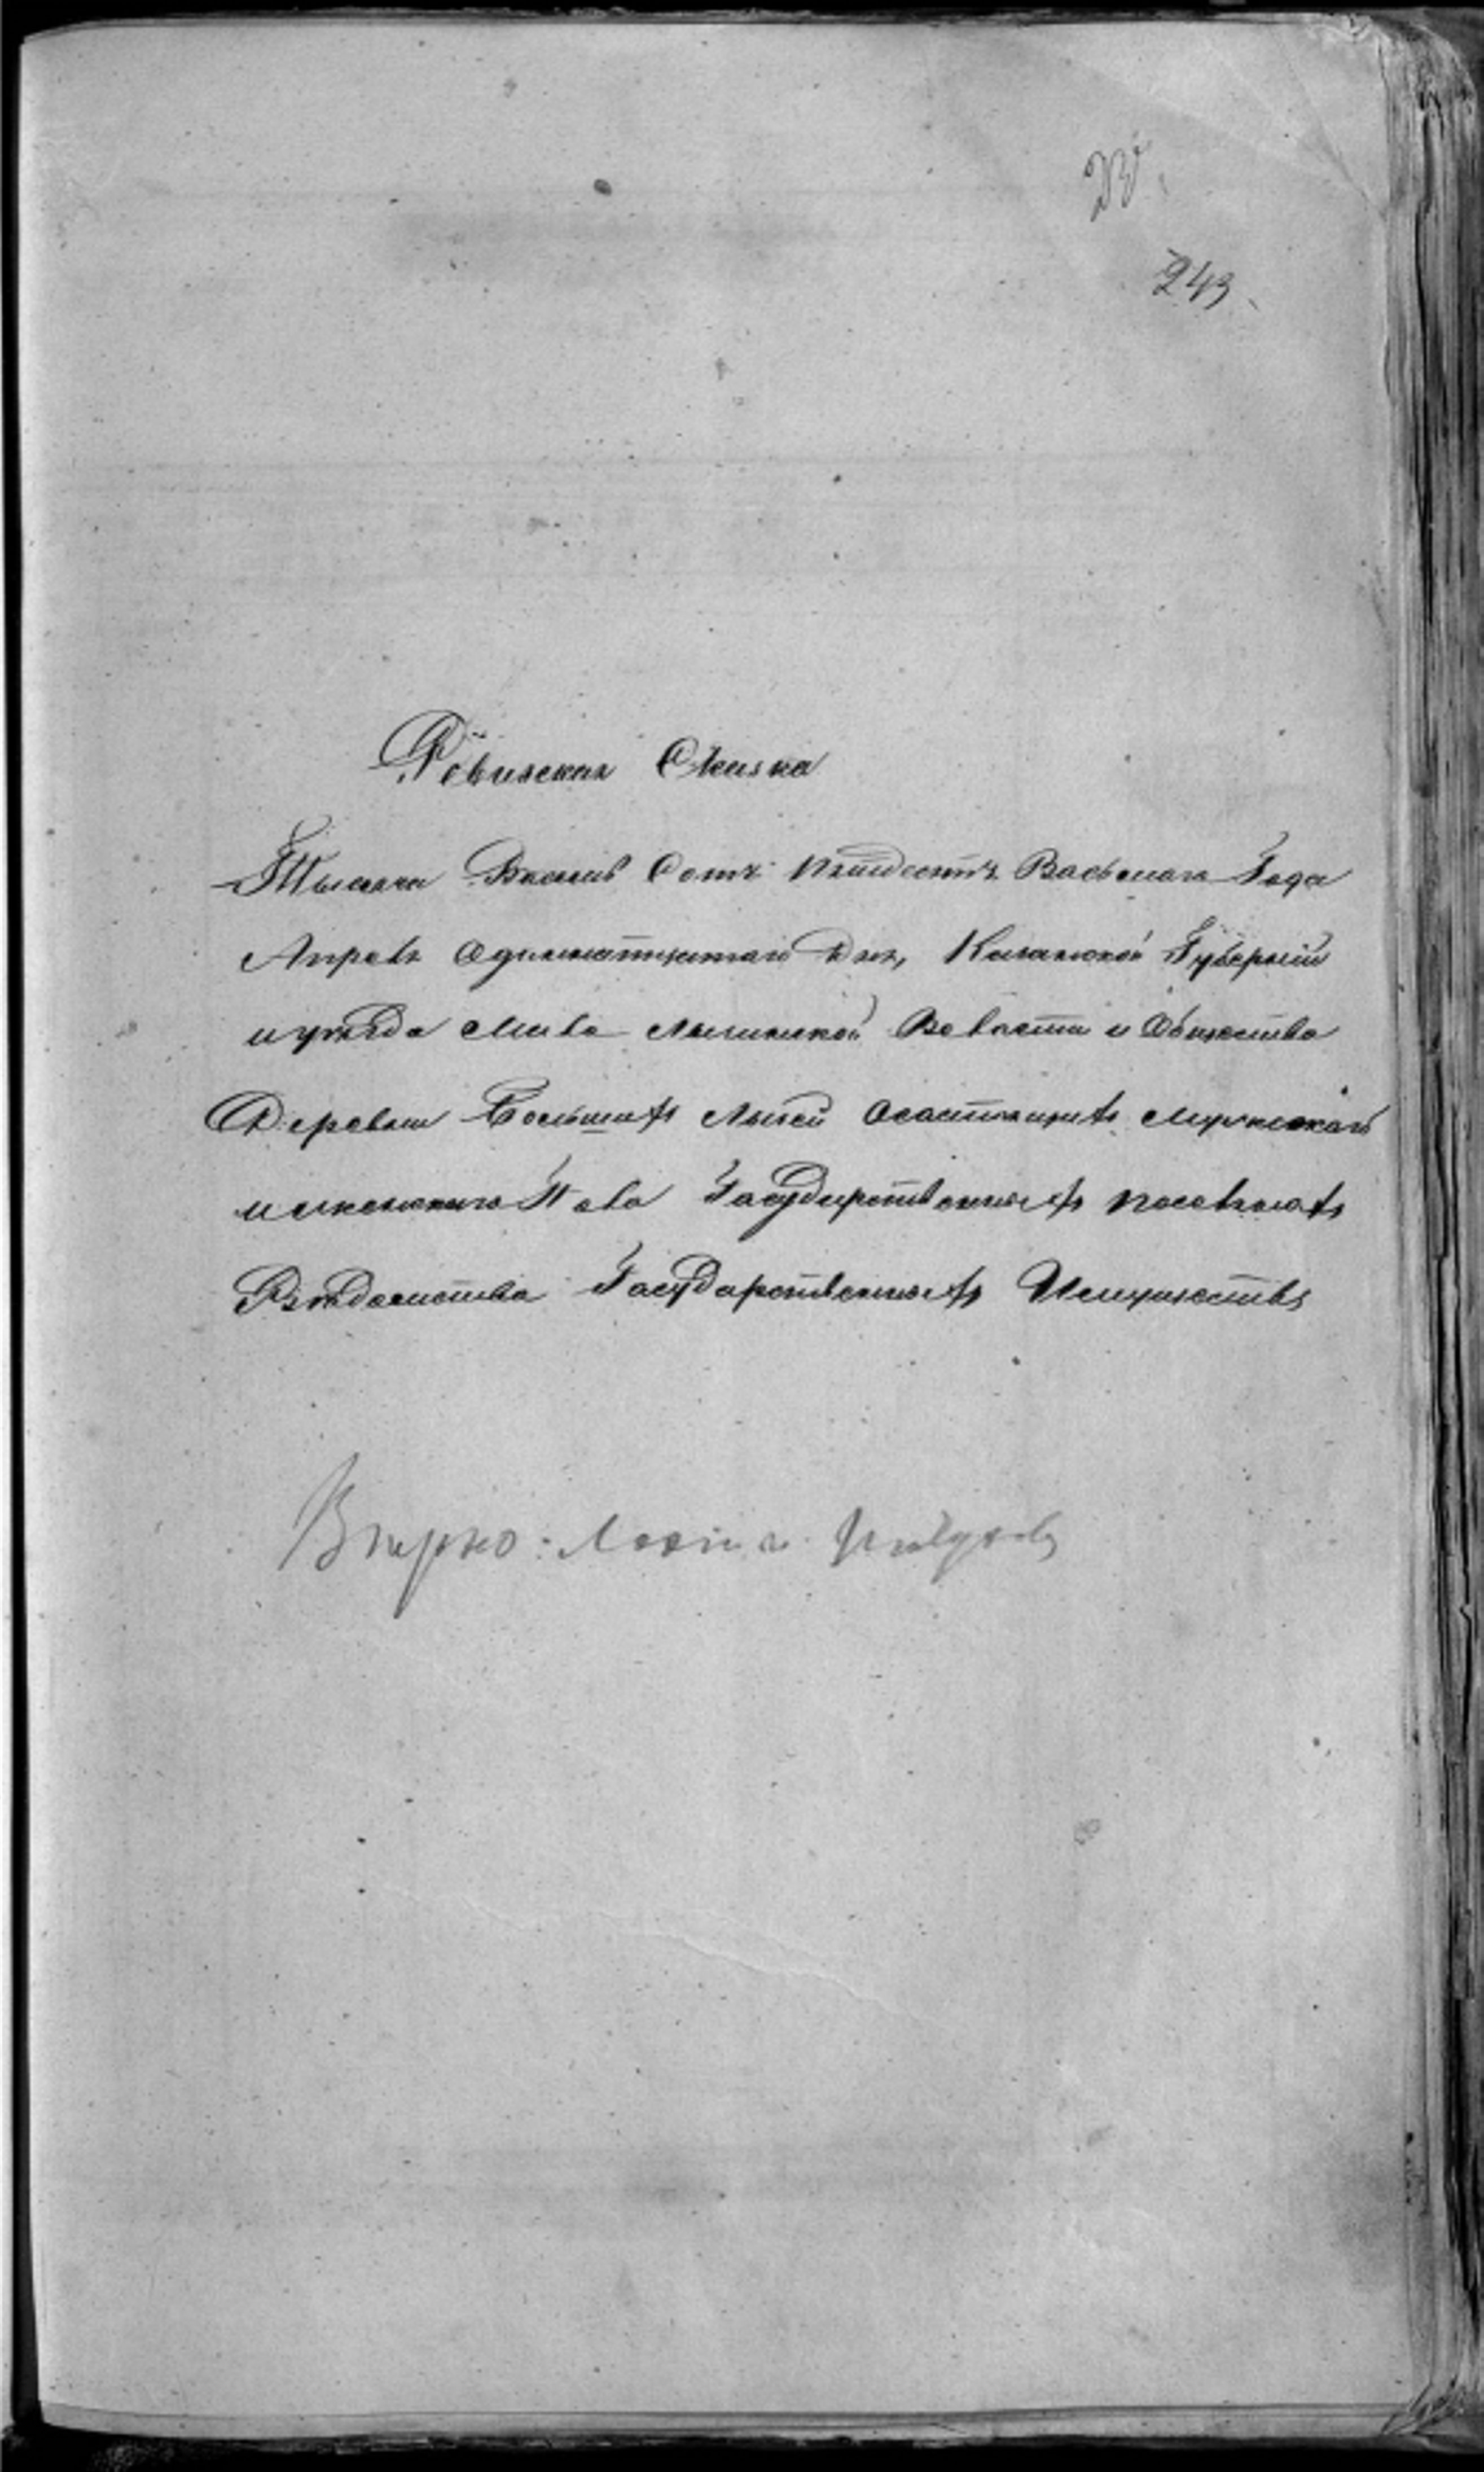 243
Ревизская Скаска
Тысяча Восемь Сотъ пятдесятъ Восьмаго Года
Апреля одинатцатаго дня, Казанской Губернии
и уѣзда Мамо Лызинской Волости и Общества
Деревни Большихъ Лызей Состоящихъ мужескаго
и женскаго Пола Государственныхъ поселянъ
Вѣдомства Государственныхъ Имуществъ